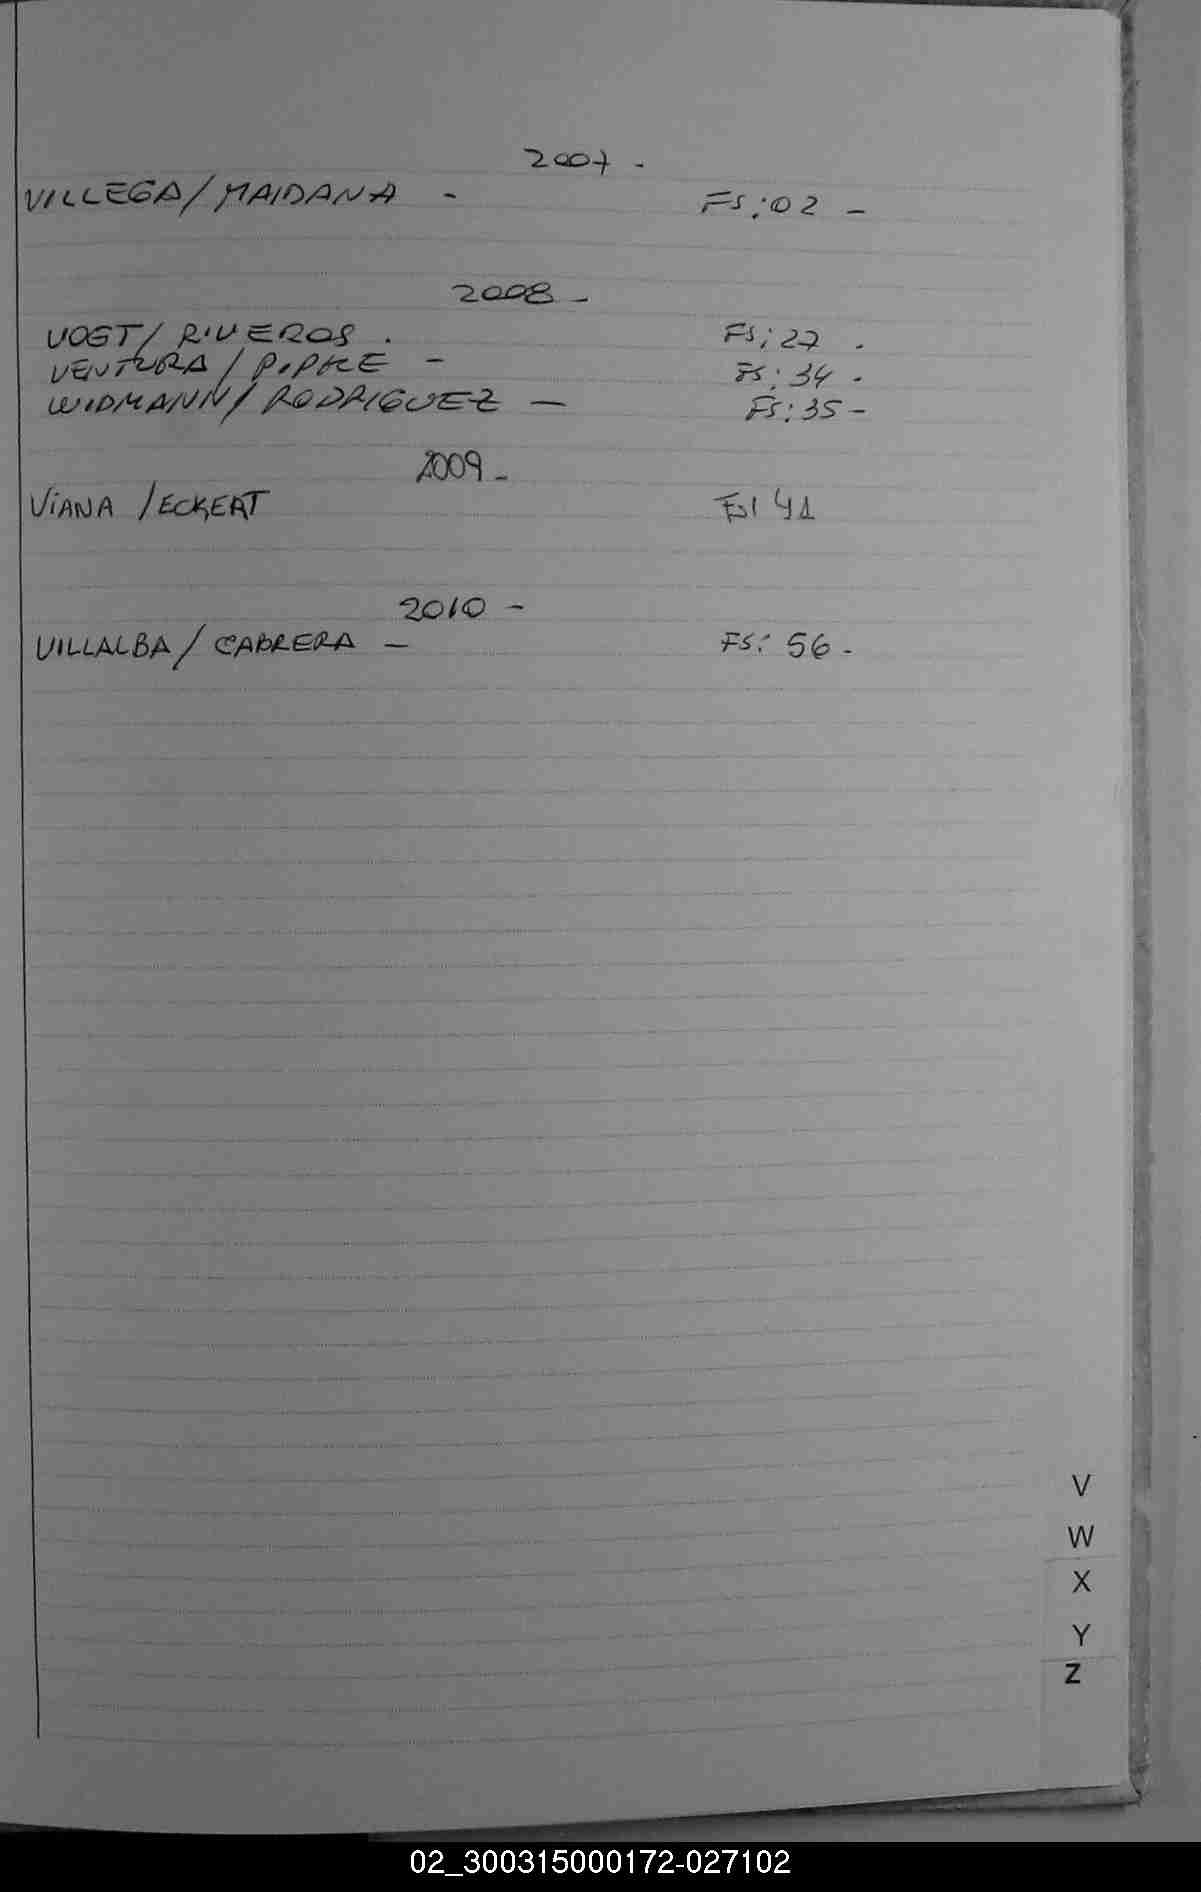 2007 -
VILLEGA / MAIDANA - Fs: 02 -
2008 -
VOGT / RIVEROS . Fs: 27 .
VENTURA / PIPKE - Fs: 34 .
WIDMANN / RODRIGUEZ - Fs: 35 -
2009 -
ViANA / ECKERT Fs: 41
2010 -
VILLALBA / CABRERA - FS: 56 -
V
W
X
Y
Z
02_300315000172-027102